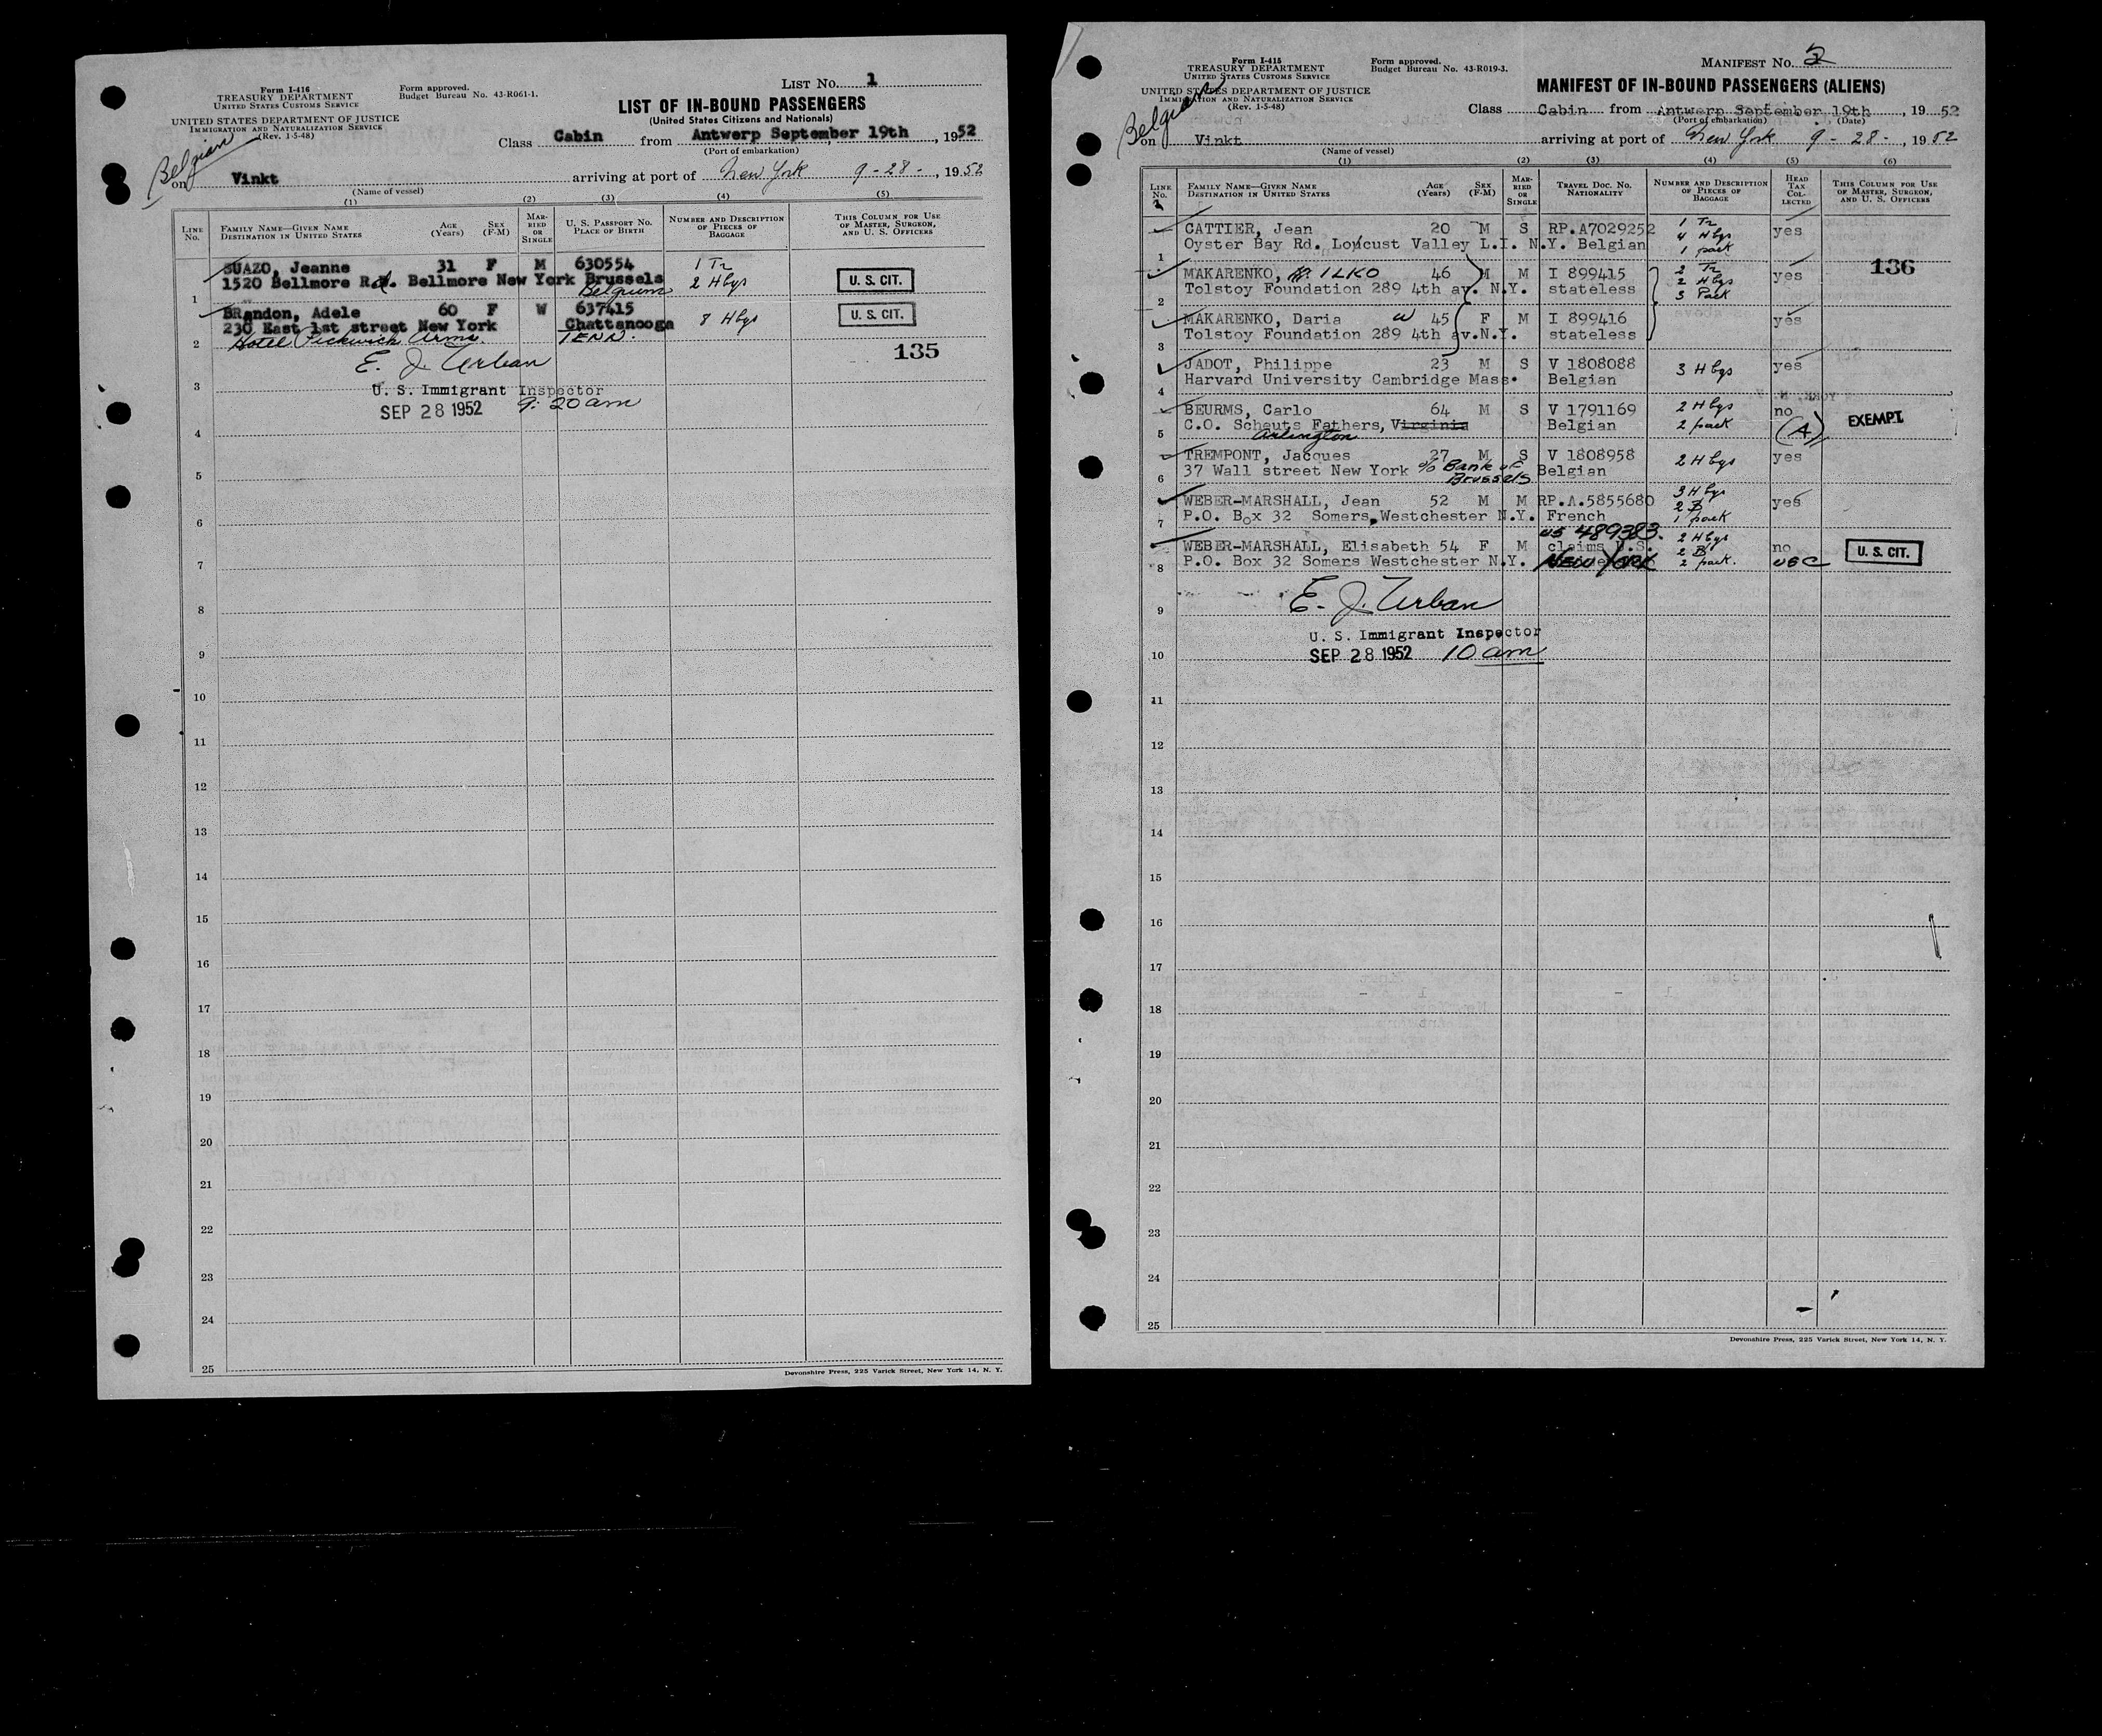 Form I-416
TREASURY DEPARTMENT
UNITED STATES CUSTOMS SERVICE
UNITED STATES DEPARTMENT OF JUSTICE
IMMIGRATION AND NATURALIZATION SERVICE
(Rev. 1-5-48)
Form approved.
Budget Bureau No. 43-R061-1.
LIST No. 1
LIST OF IN-BOUND PASSENGERS
(United States Citizens and Nationals)
Class Cabin from Antwerp September 19th, 1952
(Port of embarkation)
Belgian
on Vinkt arriving at port of New York 9-28-, 1952
(Name of vessel)
(1) (2) (3) (4) (5)
LINE No. FAMILY NAME—GIVEN NAME DESTINATION IN UNITED STATES AGE (Years) SEX (F-M) MARRIED OR SINGLE U. S. PASSPORT NO. PLACE OF BIRTH NUMBER AND DESCRIPTION OF PIECES OF BAGGAGE THIS COLUMN FOR USE OF MASTER, SURGEON, AND U. S. OFFICERS
SUAZO, Jeanne 31 F M 630554 1 Tr
1520 Bellmore Rd. Bellmore New York Brussels 2 Hbgs U. S. CIT.
1 Belgium
BRandon, Adele 60 F W 637415
230 East 1st street New York Chattanooga 8 Hbgs U. S. CIT.
2 Hotel Pickwick Arms TENN.
135
E. J. Urban
3
U. S. Immigrant Inspector
SEP 28 1952 9:20 am
4
5
6
7
8
9
10
11
12
13
14
15
16
17
18
19
20
21
22
23
24
25
Devonshire Press, 225 Varick Street, New York 14, N. Y.
Form I-415
TREASURY DEPARTMENT
UNITED STATES CUSTOMS SERVICE
UNITED STATES DEPARTMENT OF JUSTICE
IMMIGRATION AND NATURALIZATION SERVICE
(Rev. 1-5-48)
Form approved.
Budget Bureau No. 43-R019-3.
MANIFEST No. 2
MANIFEST OF IN-BOUND PASSENGERS (ALIENS)
Class Cabin from Antwerp September 19th, 1952
(Port of embarkation) (Date)
Belgian
on Vinkt arriving at port of New York 9-28-, 1952
(Name of vessel)
(1) (2) (3) (4) (5) (6)
LINE No. FAMILY NAME—GIVEN NAME DESTINATION IN UNITED STATES AGE (Years) SEX (F-M) MARRIED OR SINGLE TRAVEL DOC. NO. NATIONALITY NUMBER AND DESCRIPTION OF PIECES OF BAGGAGE HEAD TAX COLLECTED THIS COLUMN FOR USE OF MASTER, SURGEON, AND U. S. OFFICERS
CATTIER, Jean 20 M S RP.A7029252 1 Tr 4 Hbgs yes
Oyster Bay Rd. Locust Valley L.I. N.Y. Belgian 1 pack
1
136
MAKARENKO, ILKO 46 M M I 899415 2 Tr yes
Tolstoy Foundation 289 4th av. N.Y. stateless 2 Hbgs
2 3 Pack
MAKARENKO, Daria W 45 F M I 899416 yes
Tolstoy Foundation 289 4th av.N.Y. stateless
3
JADOT, Philippe 23 M S V 1808088 3 Hbgs yes
Harvard University Cambridge Mass. Belgian
4
BEURMS, Carlo 64 M S V 1791169 2 Hbgs no EXEMPT
C.O. Scheuts Fathers, Virginia Belgian 2 pack (A)
5 Arlington
TREMPONT, Jacques 27 M S V 1808958 2 Hbgs yes
37 Wall street New York c/o Bank of Belgian
6 Brussels
WEBER-MARSHALL, Jean 52 M M RP.A.5855680 3 Hbgs 2 B yes
P.O. Box 32 Somers, Westchester N.Y. French 1 pack
7
US 489383.
WEBER-MARSHALL, Elisabeth 54 F M claims U.S. 2 Hbgs 2 B no U. S. CIT.
P.O. Box 32 Somers Westchester N.Y. NEW YORK 2 pack. USC
8
E. J. Urban
9
U. S. Immigrant Inspector
10 SEP 28 1952 10 am
11
12
13
14
15
16
17
18
19
20
21
22
23
24
25
Devonshire Press, 225 Varick Street, New York 14, N. Y.